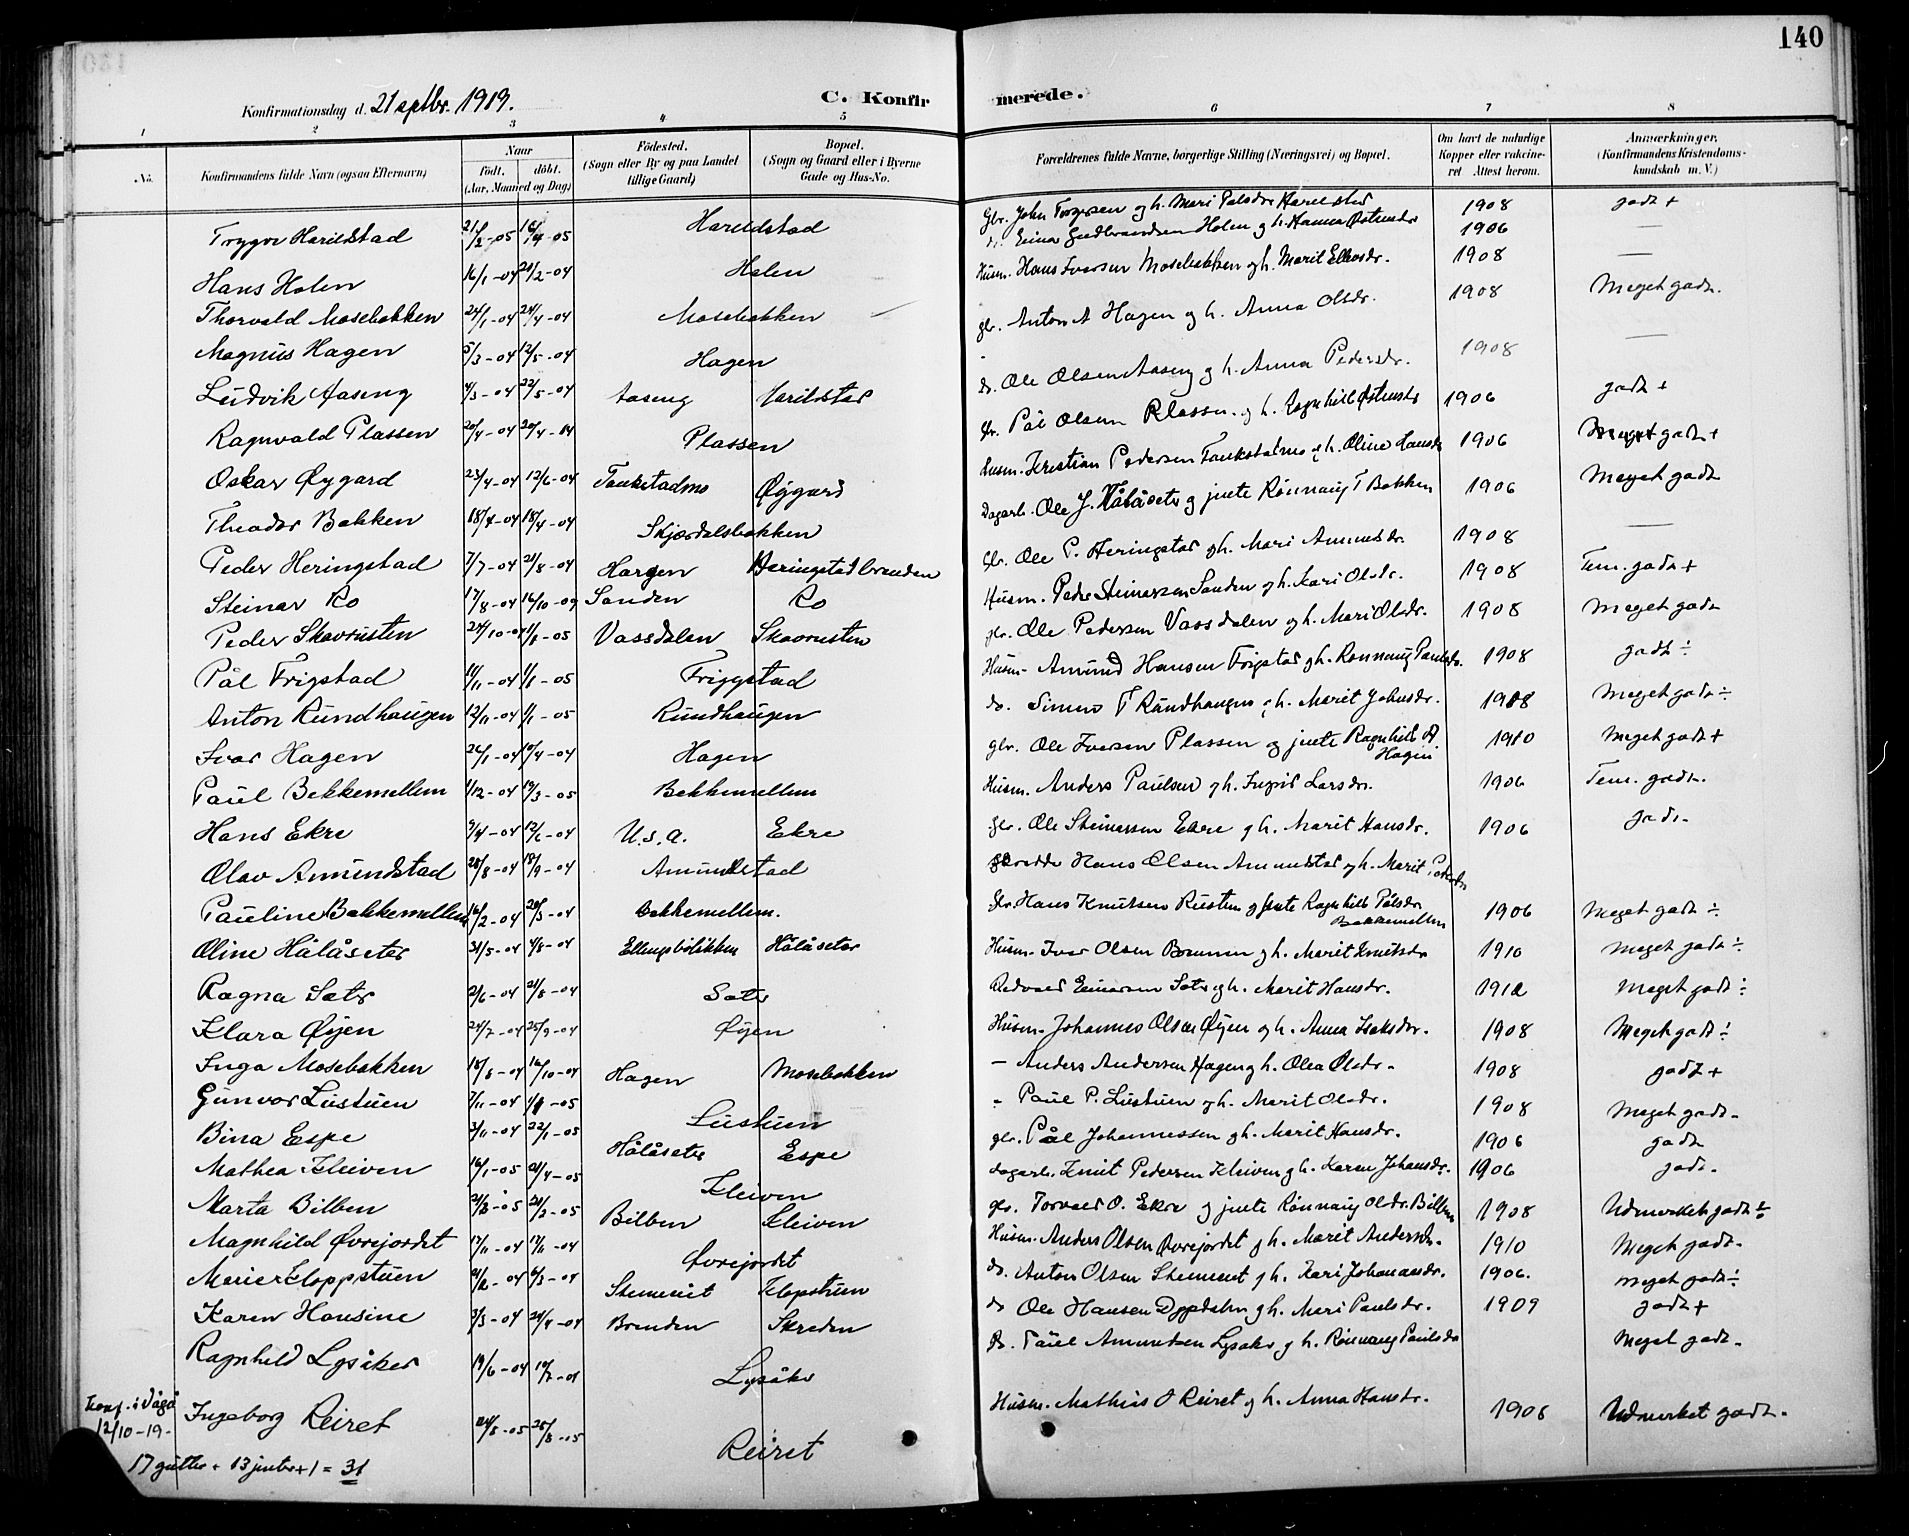 140
Konfirmationsdag d. 21 septbr. 1919.
C. Konfirmerede.
1 2 3 4 5 6 7 8
No.
Konfirmandens fulde Navn (ogsaa Efternavn)
Naar
født. døbt.
(Aar, Maaned og Dag)
Fødested.
(Sogn eller By og paa Landet
tillige Gaard)
Bopæl.
(Sogn og Gaard eller i Byerne
Gade og Hus-No.
Forældrenes fulde Navne, borgerlige Stilling (Næringsvei) og Bopæl.
Om havt de naturlige
Kopper eller vakcine-
ret Attest herom.
Anmærkninger,
(Konfirmandens Kristendoms-
kundskab m. V.)
Trygve Harildstad 21/2-05 16/4-05 Harildstad Gbr. John Torgersen og h. Mari Palsdr Harildstad 1908 godt +
Hans Holen 16/1-04 21/2-04 Holen Einar Gudbrandsen Holen og h. Hanna Østensdr 1906 —
Thorvald Mosebakken 24/1-04 24/4-04 Mosebakken Husm. Hans Iversen Mosebakken og h. Marit Ellevsdr. 1908 —
Magnus Hagen 5/3-04 12/5-04 Hagen gbr. Anton A Hagen og h. Anna Olsdr. 1908 Meget godt.
Ludvik Aaseng 4/3-04 22/5-04 Aaseng Harildstad do. Ole Olsen Aaseng og h. Anna Pedersdr. 1908 —
Ragnvald Plassen 20/4-04 20/4-14 Plassen Pål Olsen Plassen og h. Ragnhild Østensdr 1906 godt +
Oskar Øygard 23/4-04 12/6-04 Taukstadmo Øygard Husm. Kristian Pedersen Taukstadmo og h. Oline Hansdr 1906 Meget godt +
Theodor Bakken 18/4-04 18/4-04 Skjærdalsbakken Dagarb. Ole J. Hålåseter og jente Rønnaug T Bakken 1906 Meget godt
Peder Heringstad 7/7-04 21/8-04 Hargen Heringstadbrenden Gbr. Ole P. Heringstad og h. Mari Amundsdr. 1908 —
Steinar Ro 17/8-04 16/10-09 Sanden Ro Husm. Peder Steinarsen Sanden og h. Kari Olsdr. 1908 Tem. godt +
Peder Skavrusten Vassdalen Skavrusten gbr. Ole Pedersen Vassdalen og h. Mari Olsdr. 1908 Meget godt
Pål Frigstad 11/11-04 1/1-05 Friggstad Husm- Amund Hansen Frigstad og h. Rønnaug Paulsdr. 1908 godt ÷
Anton Rundhaugen 12/11-04 1/1-05 Rundhaugen do. Simen T Rundhaugen og h. Marit Johnsdr. 1918 Meget godt ÷
Ivar Hagen 26/1-04 10/4-04 Hagen gbr. Ole Iversen Plassen og jente Ragnhild A
Hagen 1910 Meget godt +
Paul Bekkemellem 1/12-04 19/3-05 Bekkemellem Husm. Anders Paulsen og h. Ingrid Larsdr. 1906 Tem. godt.
Hans Ekre 9/4-04 12/6-04 U.S.A. Ekre gbr. Ole Steinarsen Ekre og h. Marit Hansdr. 1906 godt.
Olav Amundstad 28/8-04 18/9-04 Amundstad Skredder Hans Olsen Amundstad og h. Marit Pedersdr
Pauline Bekkemellem 16/2-04 20/3-04 Bekkemellem. Gbr. Hans Knutsen Rusten og jente Ragnhild Pålsdr
Bekkemellem 1906 Meget godt ÷
Oline Hålåseter 31/5-04 4/8-04 Ellingsbølikken Hålåseter Husm. Ivar Olsen Brennen og h. Marit Knutsdr 1910 Meget godt ÷
Ragna Sæter 2/6-04 21/8-04 Sæter Redvald Einarsen Sæter og h. Marit Hansdr. 1912 Meget godt ÷
Klara Øyen 24/7-04 25/9-04 Øyen Husm- Johannes Olsen Øyen og h. Anna Isaksdr. 1908 Meget godt ÷
Inga Mosebakken 18/8-04 16/10-04 Hagen Mosebakken — Anders Andersen Hagen og h. Olea Olsdr. 1908 godt +
Gunvor Lustuen 7/11-04 1/1-05 Lustuen - Paul P. Lustuen og h. Marit Olsdr. 1908 Meget godt.
Bina Espe 3/11-04 22/1-05 Hålåseter Espe gbr. Pål Johannessen og h. Marit Hansdr. 1906 godt
Mathea Kleiven 16/1-05 24/4-05 Kleiven dagarb. Knut Pedersen Kleiven og h. Karen Johansdr. 1906 godt.
Marta Bilben Bilben Kleiven gbr. Torvald O. Ekre og jente Rønnaug Olsdr. Bilben 1908 Udmerket godt ÷
Magnhild Øvrejordet 17/11-04 17/11-04 Øvrejordet Husm. Anders Olsen Øvrejordet og h. Marit Andersdr. 1910 Meget godt.
Marie Kloppstuen Klopstuen do. Anton Olsen og h. Kari Johansdr. 1906. Meget godt ÷
Karen Hansine 3/3-04 24/4-04 Brenden Skreden do Ole Hansen og h. Mari Paulsdr. 1909 godt +
Ragnhild Lysåker 19/6-04 Lysåker do. Paul Amundsen Lysaker og h. Rønnaug Paulsdr Meget godt.
Konf. i Vågå
12/10-19-
Ingeborg Reiret 24/8-05 Reiret Husm. Mathias O Reiret og h. Anna Hansdr. 1908 Udmerket godt.
17 gutter + 13 jenter + 1 = 31